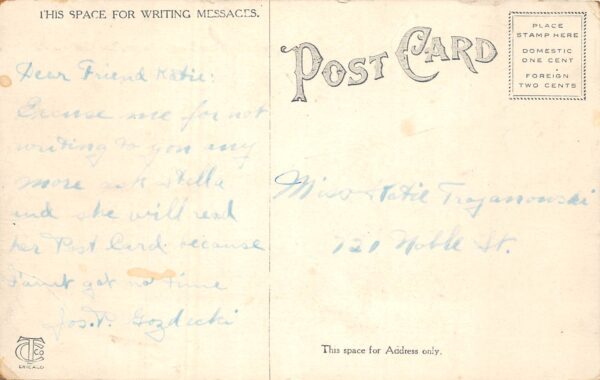 THIS SPACE FOR WRITING MESSAGES.
POST CARD
PLACE
STAMP HERE
DOMESTIC
ONE CENT
FOREIGN
TWO CENTS
Dear Friend Katie:
Excuse me for not
writing to you any
more ask Stella
and she will read
her Post Card because
I aint got no time
Jos. P. Gozdecki
Miss Katie Trojanowski
721 Noble St.
This space for Address only.
CHICAGO